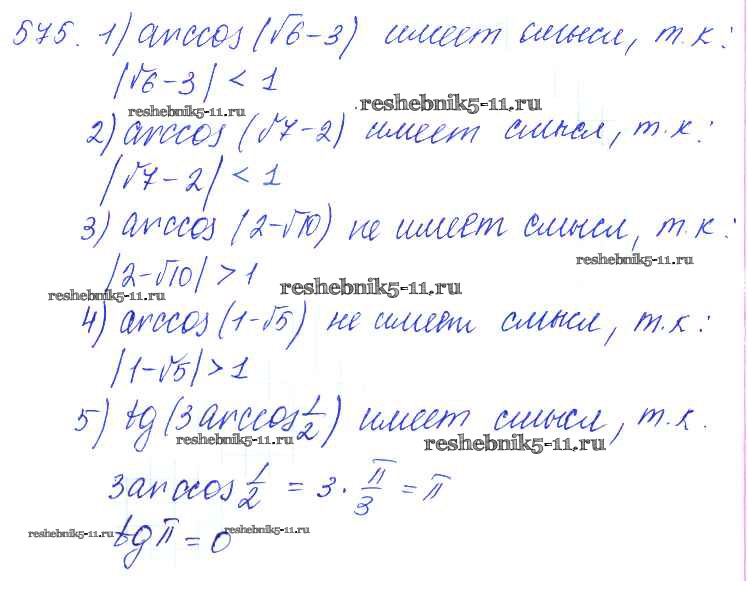 575. 1) arccos (√6-3) имеет смысл, т.к:
|√6-3| < 1
reshebnik5-11.ru
reshebnik5-11.ru
2) arccos (√7-2) имеет смысл, т.к:
|√7-2| < 1
3) arccos (2-√10) не имеет смысл, т.к:
reshebnik5-11.ru
|2-√10| > 1
reshebnik5-11.ru
reshebnik5-11.ru
4) arccos (1-√5) не имеет смысл, т.к:
|1-√5| > 1
5) tg (3 arccos 1/2) имеет смысл, т.к.
reshebnik5-11.ru
reshebnik5-11.ru
3 arccos 1/2 = 3 · π/3 = π
tg π = 0
reshebnik5-11.ru
reshebnik5-11.ru